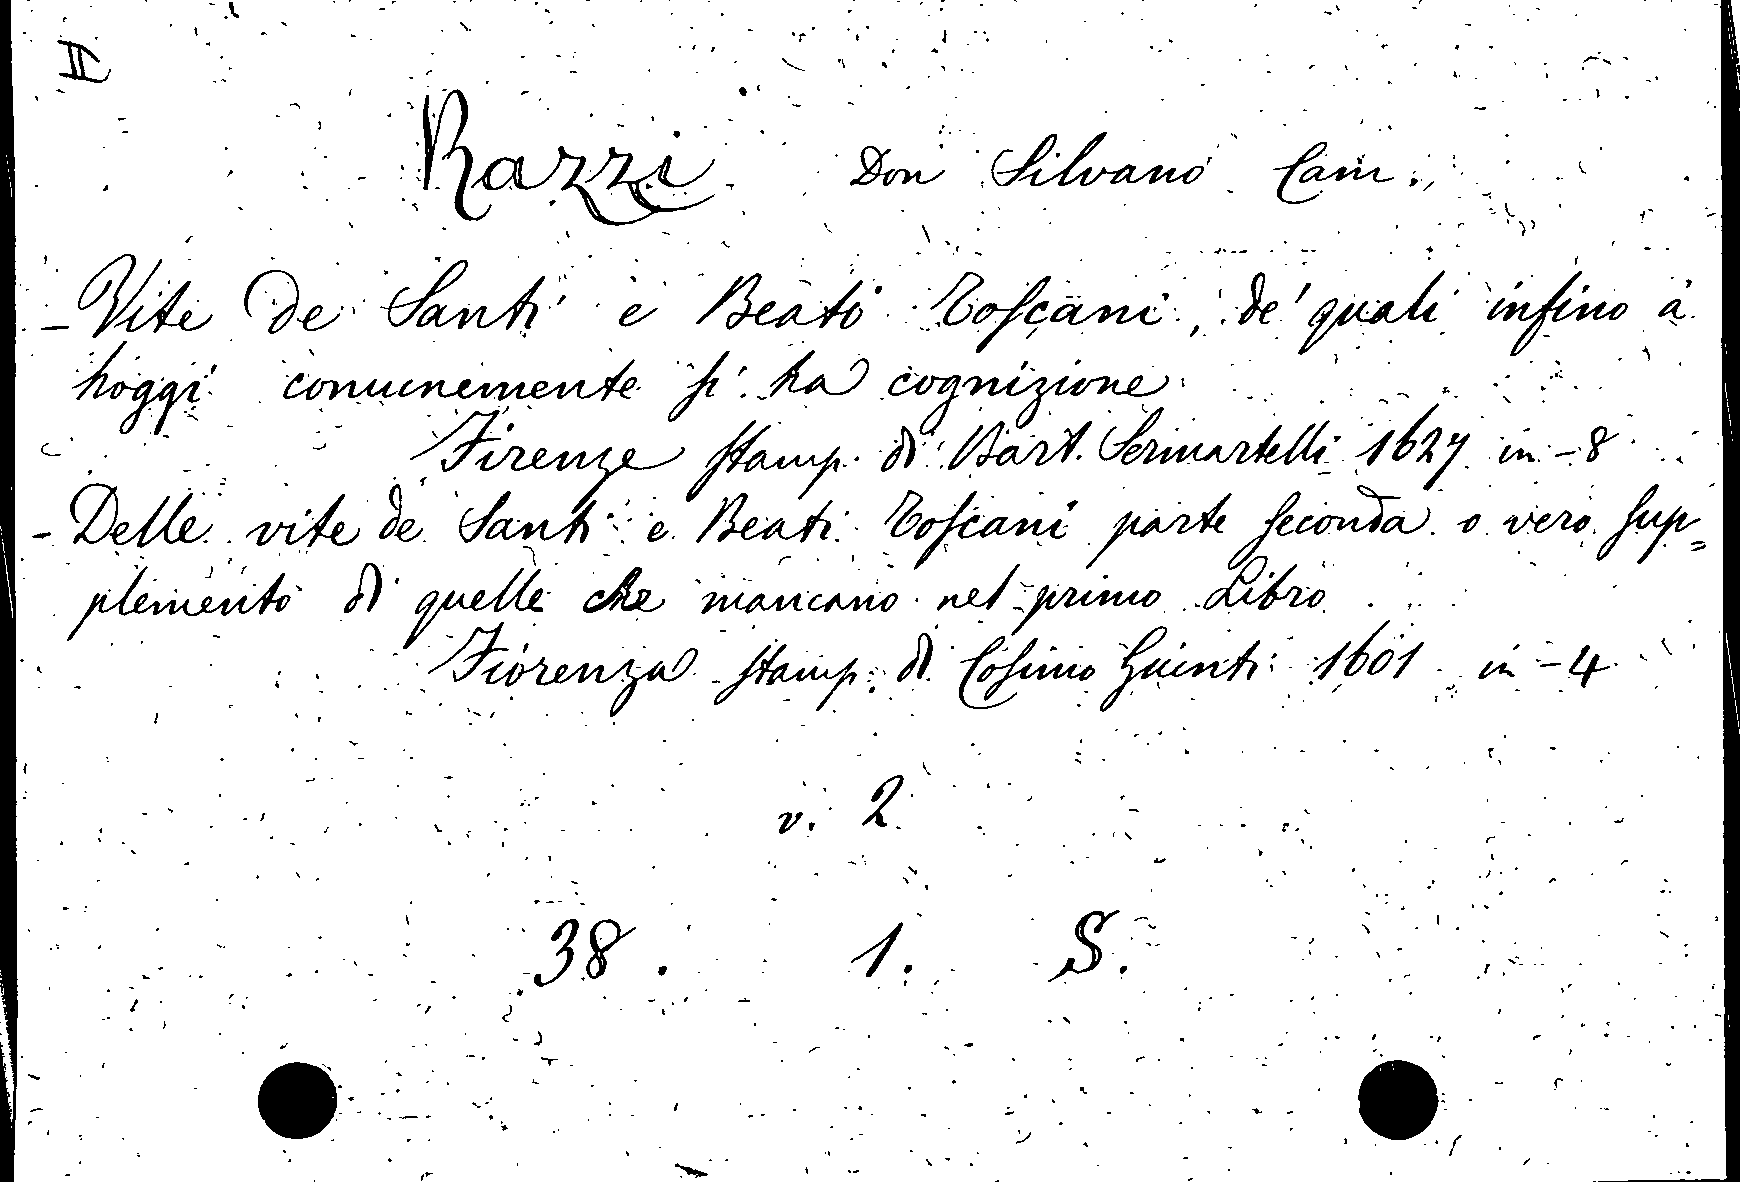 II
Razzi Don Silvano Cam.
- Vite de Santi e Beati Toscani, de' quali infino a
hoggi comunemente si ha cognizione
Firenze stamp. di Bart. Sermartelli 1627 in - 8
- Delle vite de Santi e Beati Toscani parte seconda o vero sup=
plemento di quelle che mancano nel primo Libro
Fiorenza stamp. di Cosimo Giunti 1601 in - 4
v. 2
38. 1. S.